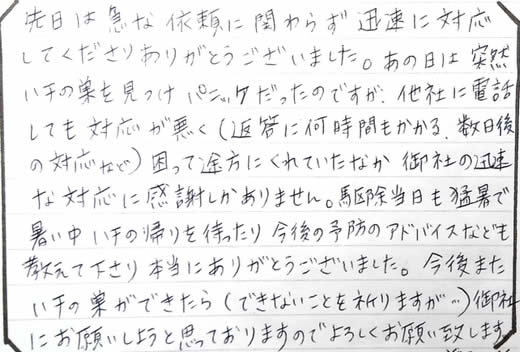 先日は急な依頼に関わらず迅速に対応
してくださりありがとうございました。あの日は突然
ハチの巣を見つけパニックだったのですが、他社に電話
しても対応が悪く(返答に何時間もかかる、数日後
の対応など)困って途方にくれていたなか御社の迅速
な対応に感謝しかありません。駆除当日も猛暑で
暑い中ハチの帰りを待ったり今後の予防のアドバイスなども
教えて下さり本当にありがとうございました。今後また
ハチの巣ができたら(できないことを祈りますが…)御社
にお願いしようと思っておりますのでよろしくお願い致します